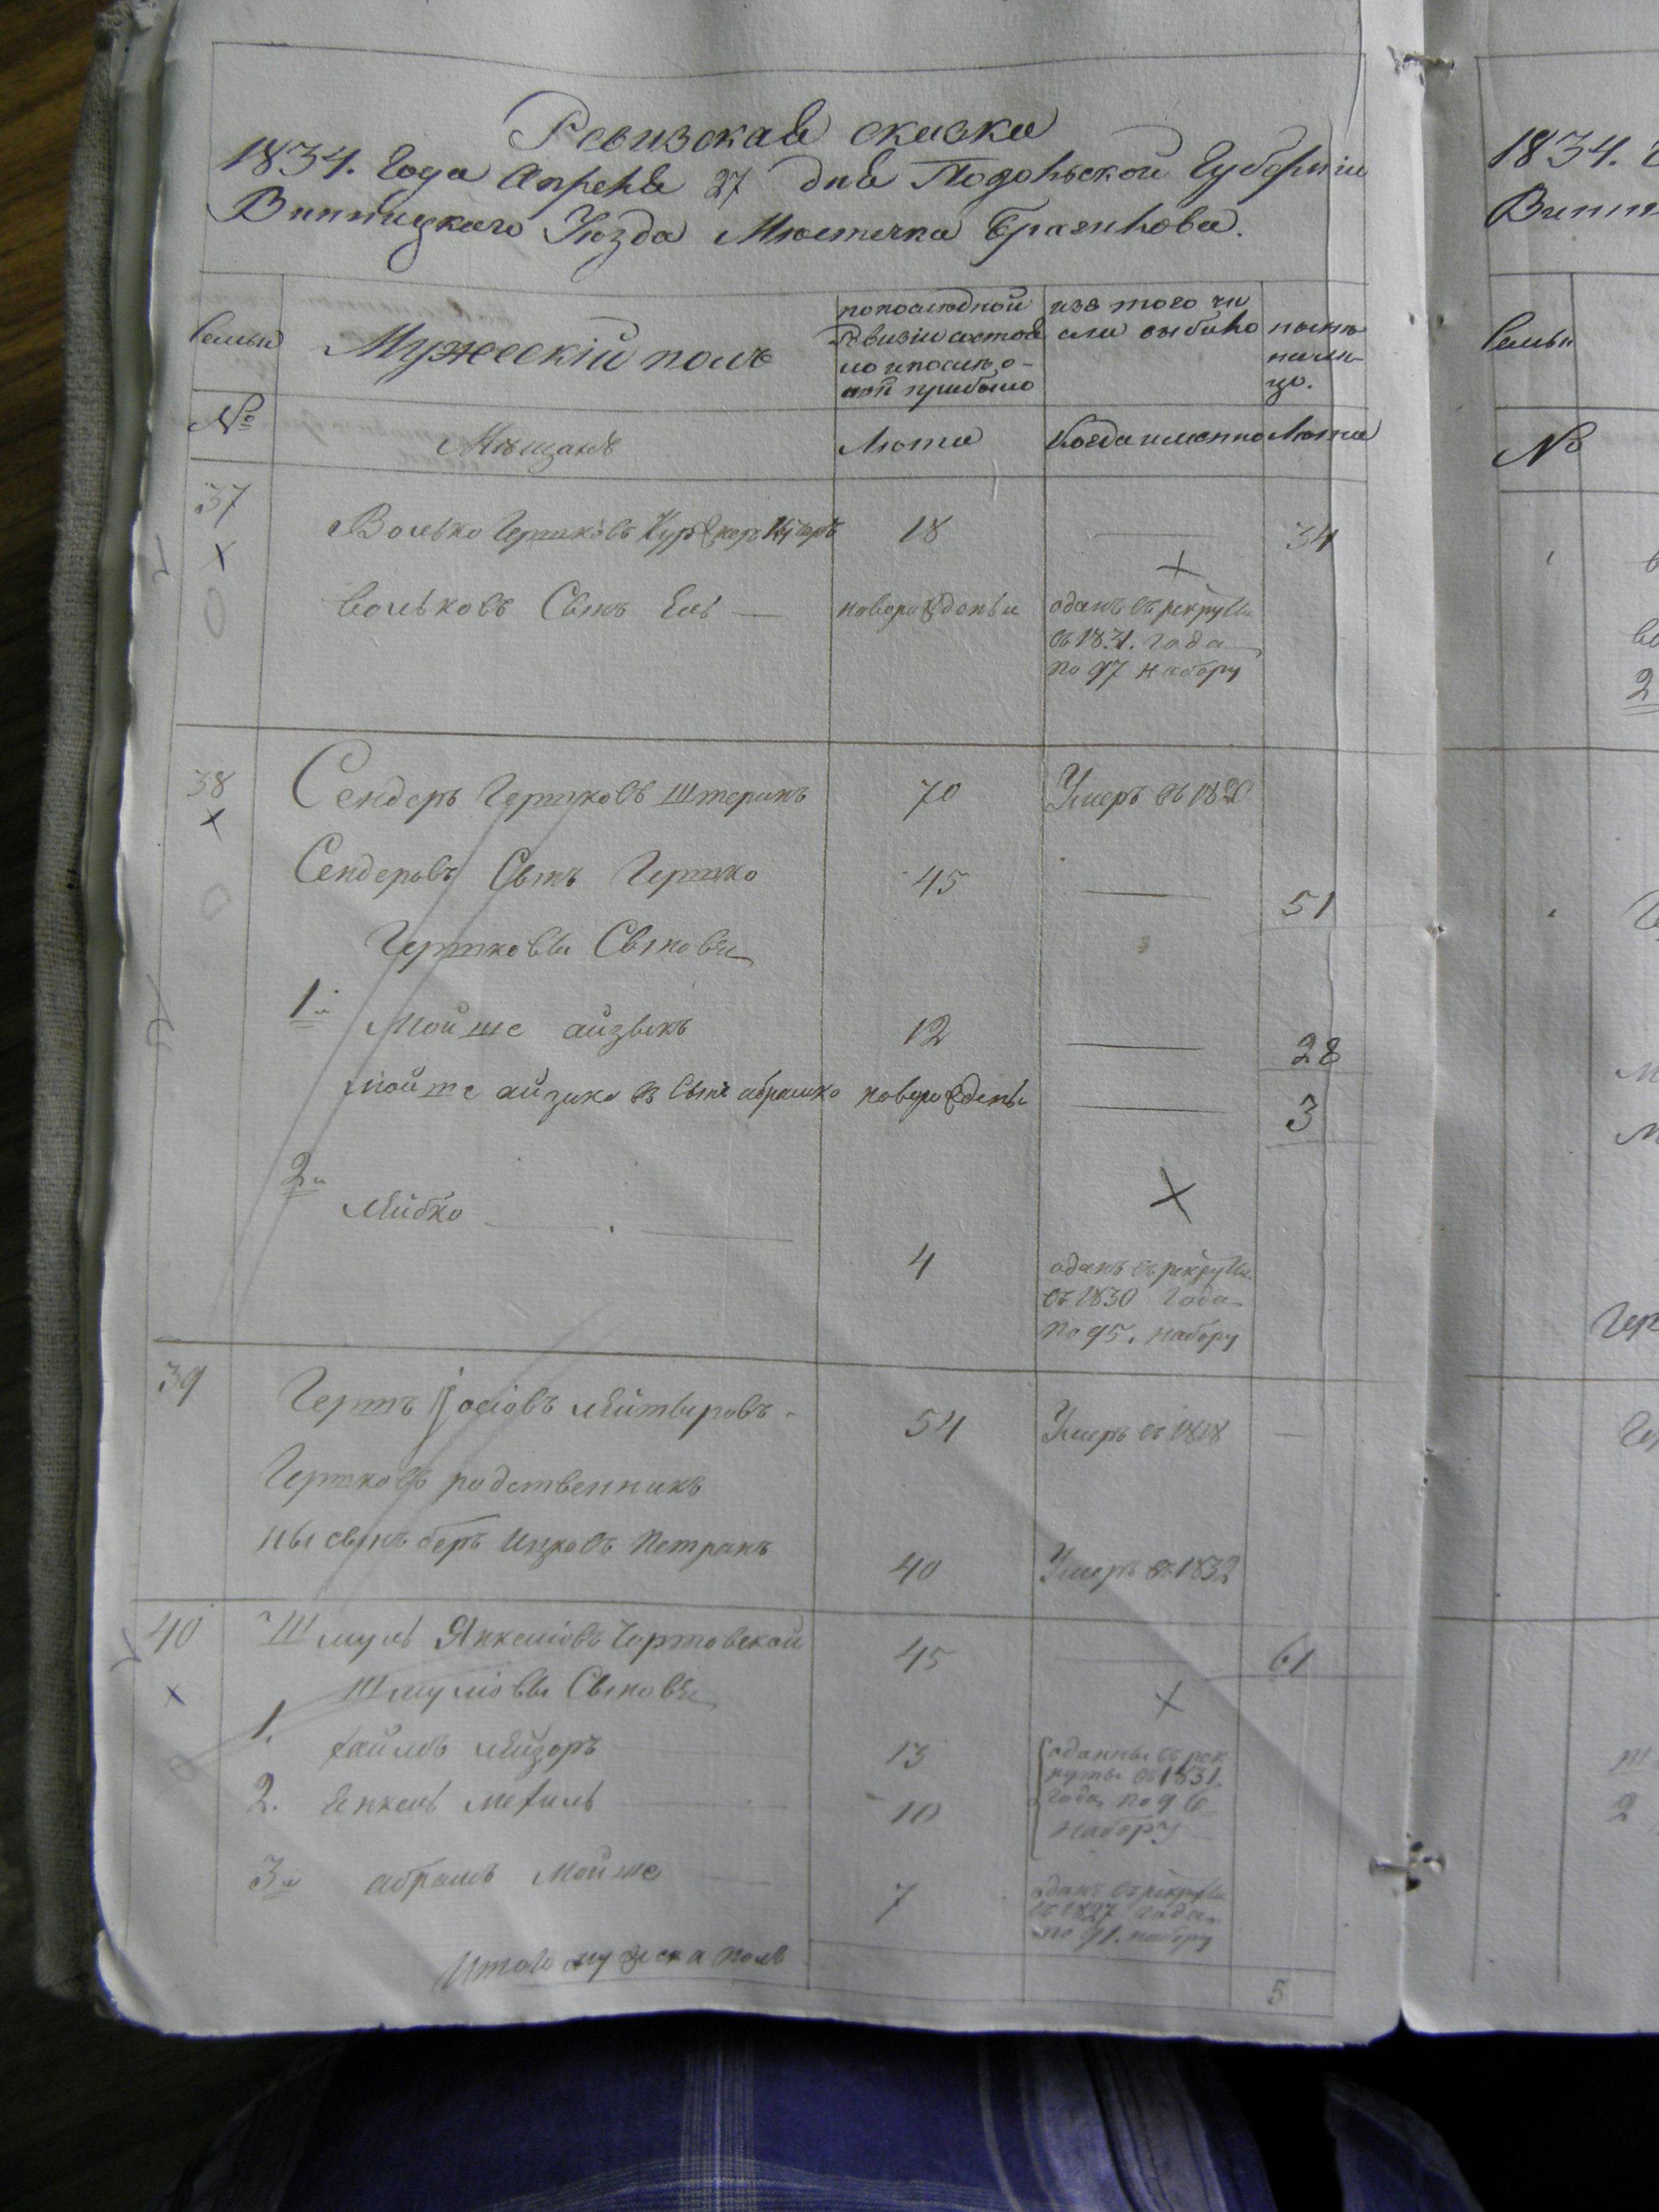 Ревизская сказка
1834. Года Апреля 27 дня Подольской Губерніи
Винницкаго Уюзда Мюстечка Браилова.
Семьи
Мужескій полъ
попослюдной
Ревизіи состоя
ло и послю о-
ной прибыло
изъ того чи
сла выбыло
ныню
нали-
цо.
№
Мющанъ
Люта
Когда именно
Люта
37
Волько Гершковъ
18
34
Вольковъ Сынъ Ель
новорожденъи
одан въ рекруты
въ 1831. года
по 97 набору
38
Сендеръ Гершковъ Штеринъ
70
Умеръ въ 1826
Сендеровъ Сынъ Гершко
45
51
Гершковы Сыновья
1й
Мойше айзыкъ
12
28
мойше айзиковъ Сынъ абрамко
новорожденъ
3
2й
Лейбко
4
оданъ въ рекруты
въ 1830 года
по 95. набору
39
Гершъ Іосіовъ Лейтыровъ
54
Умеръ въ 1828
Гершковъ родственникъ
ны сынъ беръ Ицковъ Петракъ
40
Умеръ въ 1832
40
Шмуль Янкеліовъ Чортовской
45
61
Шмуліовы Сыновья
1.
хаимъ Лейзоръ
13
оданны въ рек
руты въ 1831.
года по 96
набору
2.
Янкель мехиль
10
3й
абрамъ Мойше
7
оданъ въ рекруты
въ 1827 года
по 91. набору
Итого мужеска полъ
5
1834.
Семьи
№